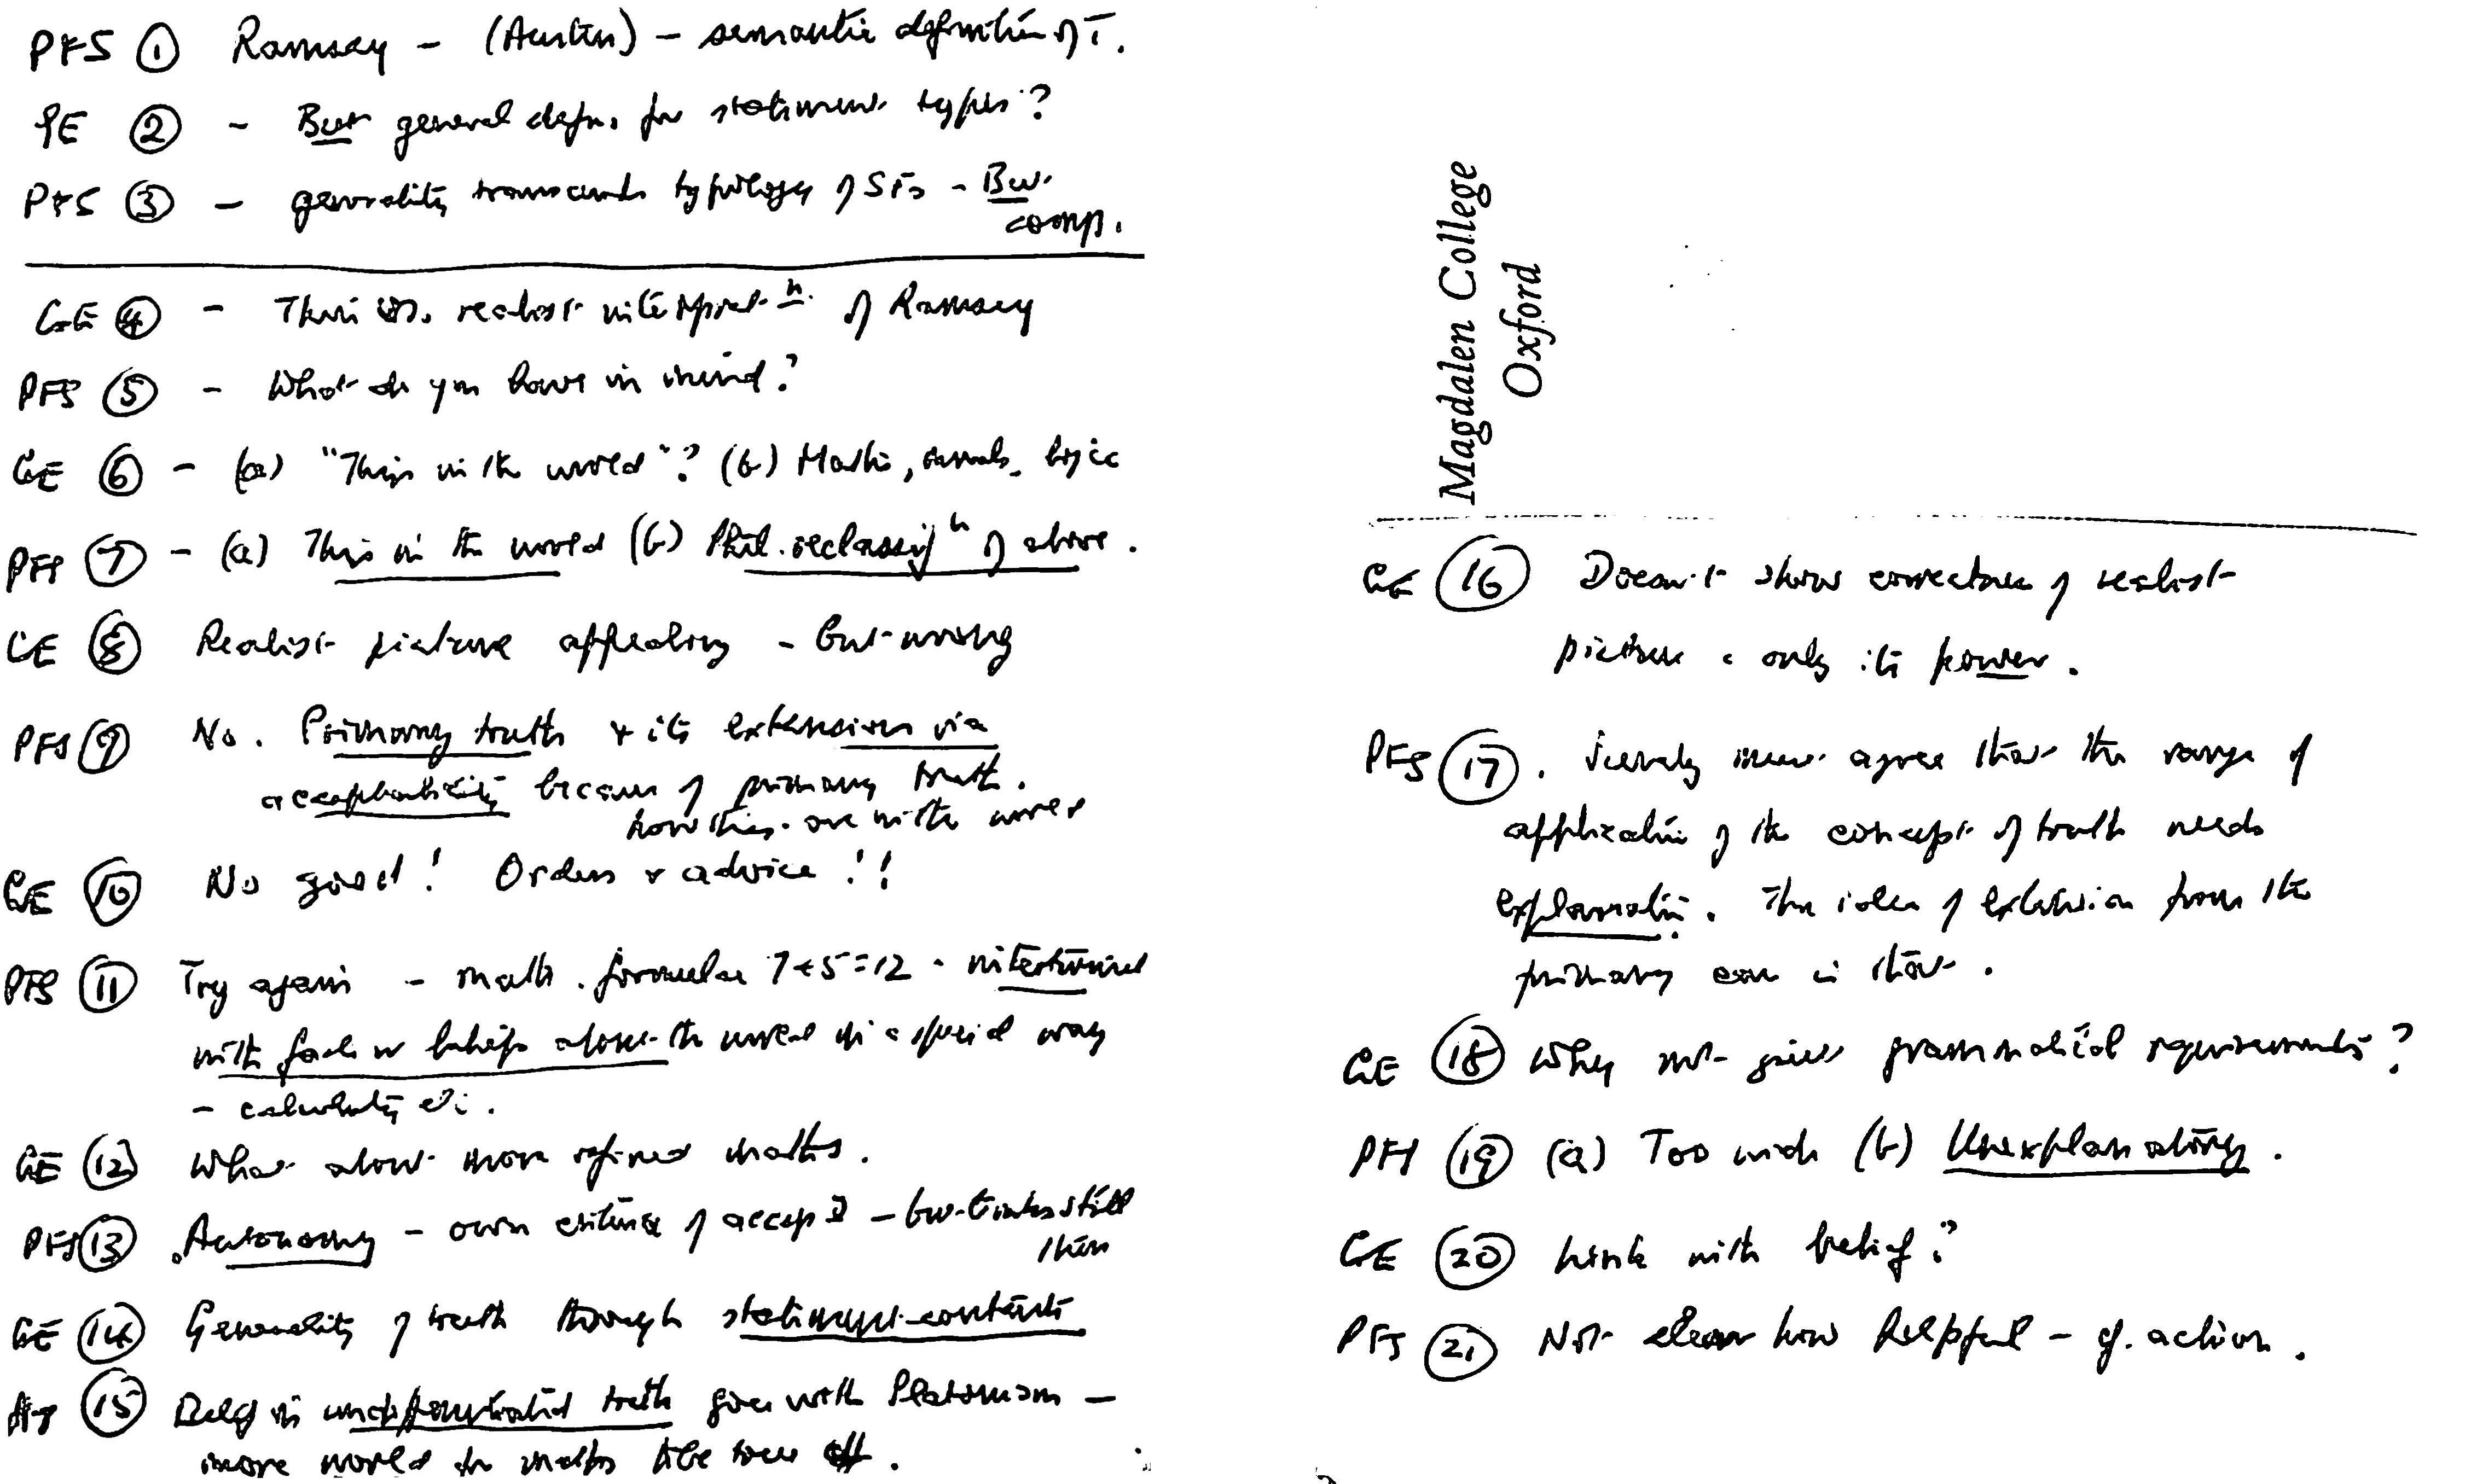 PFS ① Ramsey - (Austin) - semantic definition of T.
GE ② - But general defn. for statement types?
PFS ③ - generality transcends typology of STs - But
comp.
GE ④ - realist interpret.n of Ramsey
PFS ⑤ - What do you have in mind?
GE ⑥ - (a) "Things in the world"? (b) Maths, morals, logic
PFS ⑦ - (a) Things in the world (b) Phil. reclassifn of above.
GE ⑧ Realist picture appealing - but wrong
PFS ⑨ No. Primary truth & its extension via
acceptability because of primary truth.
how things are in the world
GE ⑩ No good! Orders & advice!!
PFS ⑪ Try again - math. formulae 7+5=12 - intertwined
with factual beliefs about the world in a special way
- calculating etc.
GE ⑫ What about more refined maths.
PFS ⑬ Autonomy - own criteria of - but links still
there
GE ⑭ Generality of truth through statement-contents
PFS ⑮ Belief in undifferentiated truth goes with Platonism -
more world for maths to be true of.
Magdalen College
Oxford
GE ⑯ Doesn't show correctness of realist
picture - only its power.
PFS ⑰. Surely must agree that the range of
application of the concept of truth needs
explanation. The idea of extension from the
primary case is that.
GE ⑱ Why not give grammatical requirements?
PFS ⑲ (a) Too wide (b) Unexplanatory.
GE ⑳ Link with belief?
PFS ㉑ Not clear how helpful - cf. action.